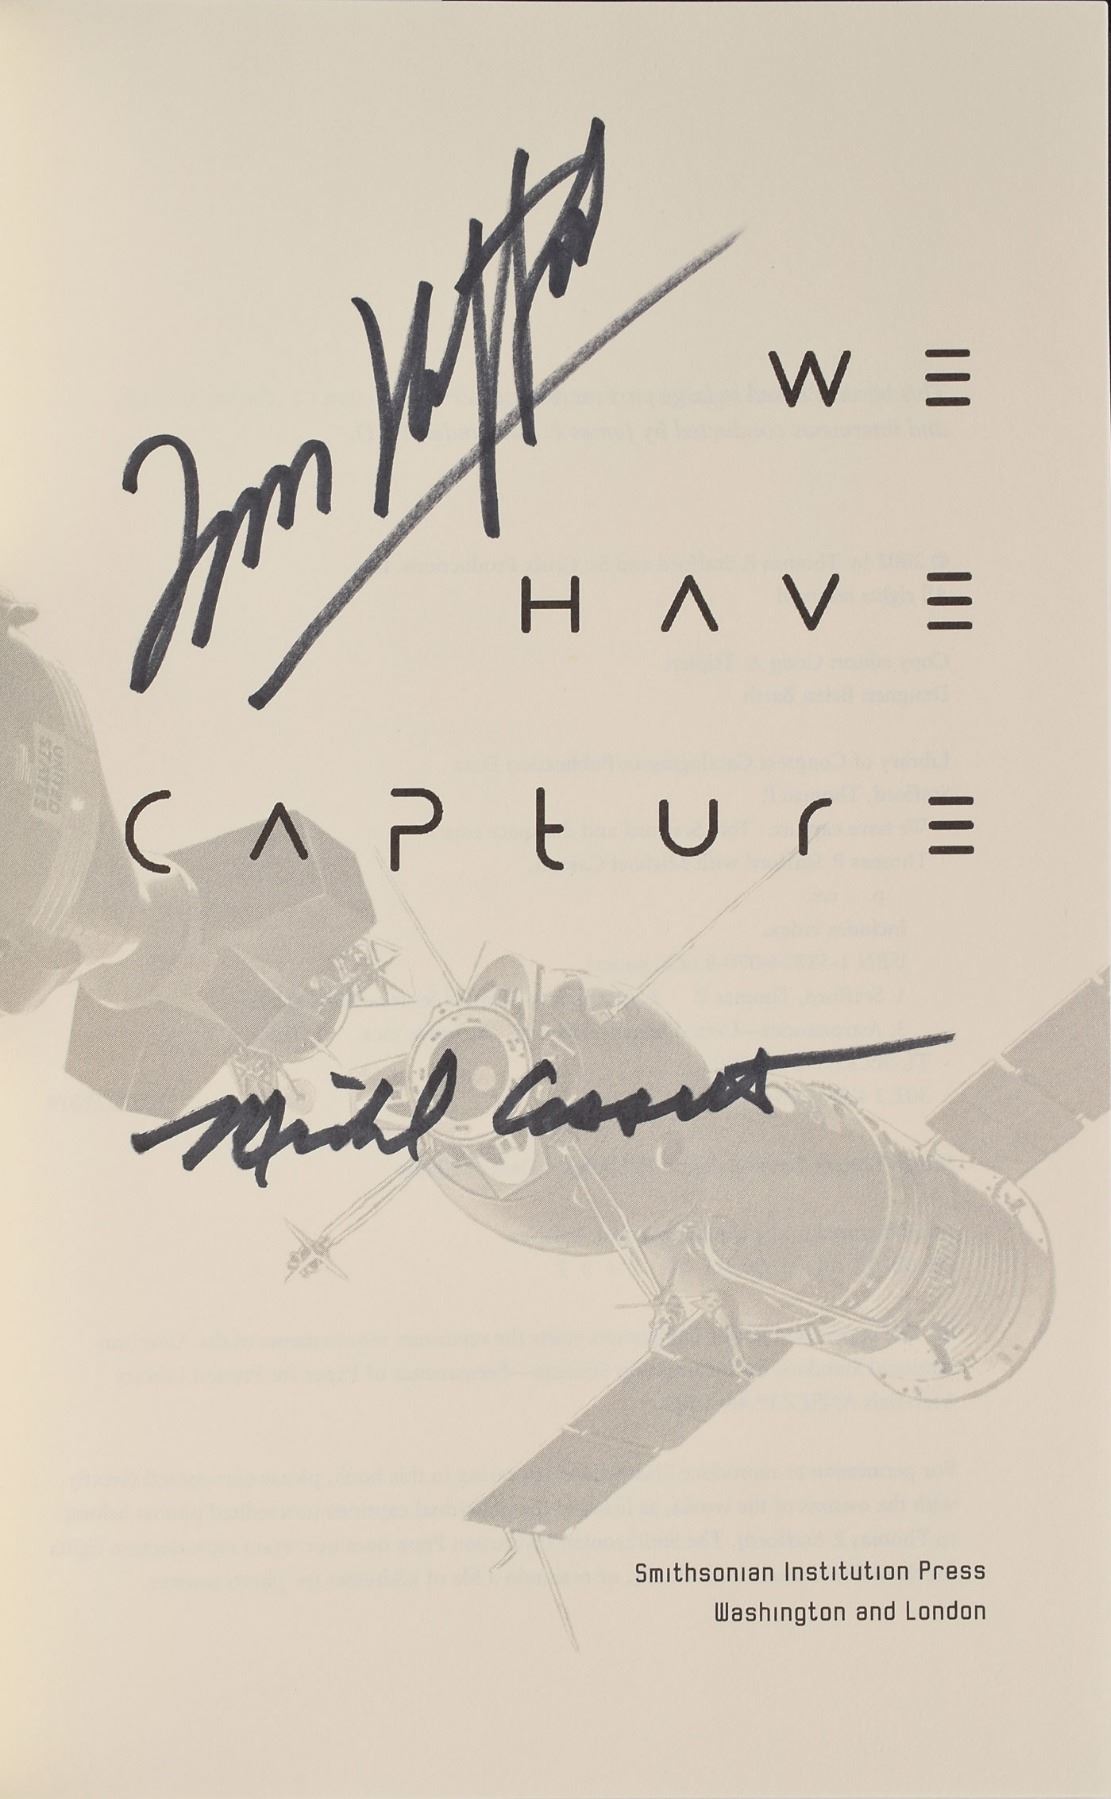 Tom Stafford
WE
HAVE
CAPTURE
UNITED
STATES
Michael Cassutt
Smithsonian Institution Press
Washington and London